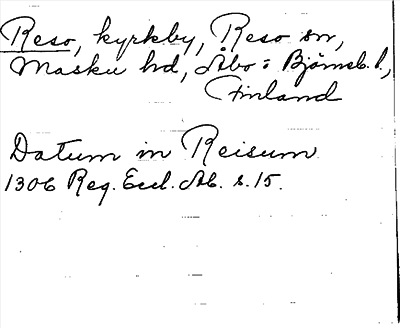 Reso, kyrkby, Reso sn,
Masku hd, Åbo o. Björneb. l.,
Finland
Datum in Reisum
1306 Reg. Eccl. Ab. s. 15.